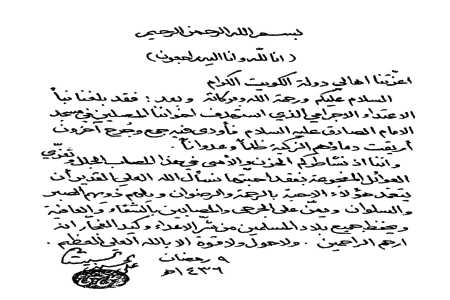 بسم الله الرحمن الرحيم
(انا لله وانا اليه راجعون)
اعزتنا اهالي دولة الكويت الكرام
السلام عليكم ورحمة الله وبركاته وبعد: فقد بلغنا نبأ
الاعتداء الاجرامي الذي استهدف اخواننا المصلين في مسجد
الامام الصادق عليه السلام فأودى فيه جمع وجرح آخرون
أريقت دماؤهم الزكية ظلماً وعدواناً.
واننا اذ نشاطركم الحزن والأسى في هذا المصاب الجلل ونعزي
العوائل المفجوعة بفقد احبتها نسأل الله العلي القدير أن
يتغمد هؤلاء الاحبة بالرحمة والرضوان ويلهم ذويهم الصبر
والسلوان ويمنّ على الجرحى والمصابين بالشفاء والعافية
ويحفظ جميع بلاد المسلمين من شر الاعداء وكيد الفجار انه
ارحم الراحمين. ولا حول ولا قوة الا بالله العلي العظيم.
٩ رمضان
١٤٣٦هـ